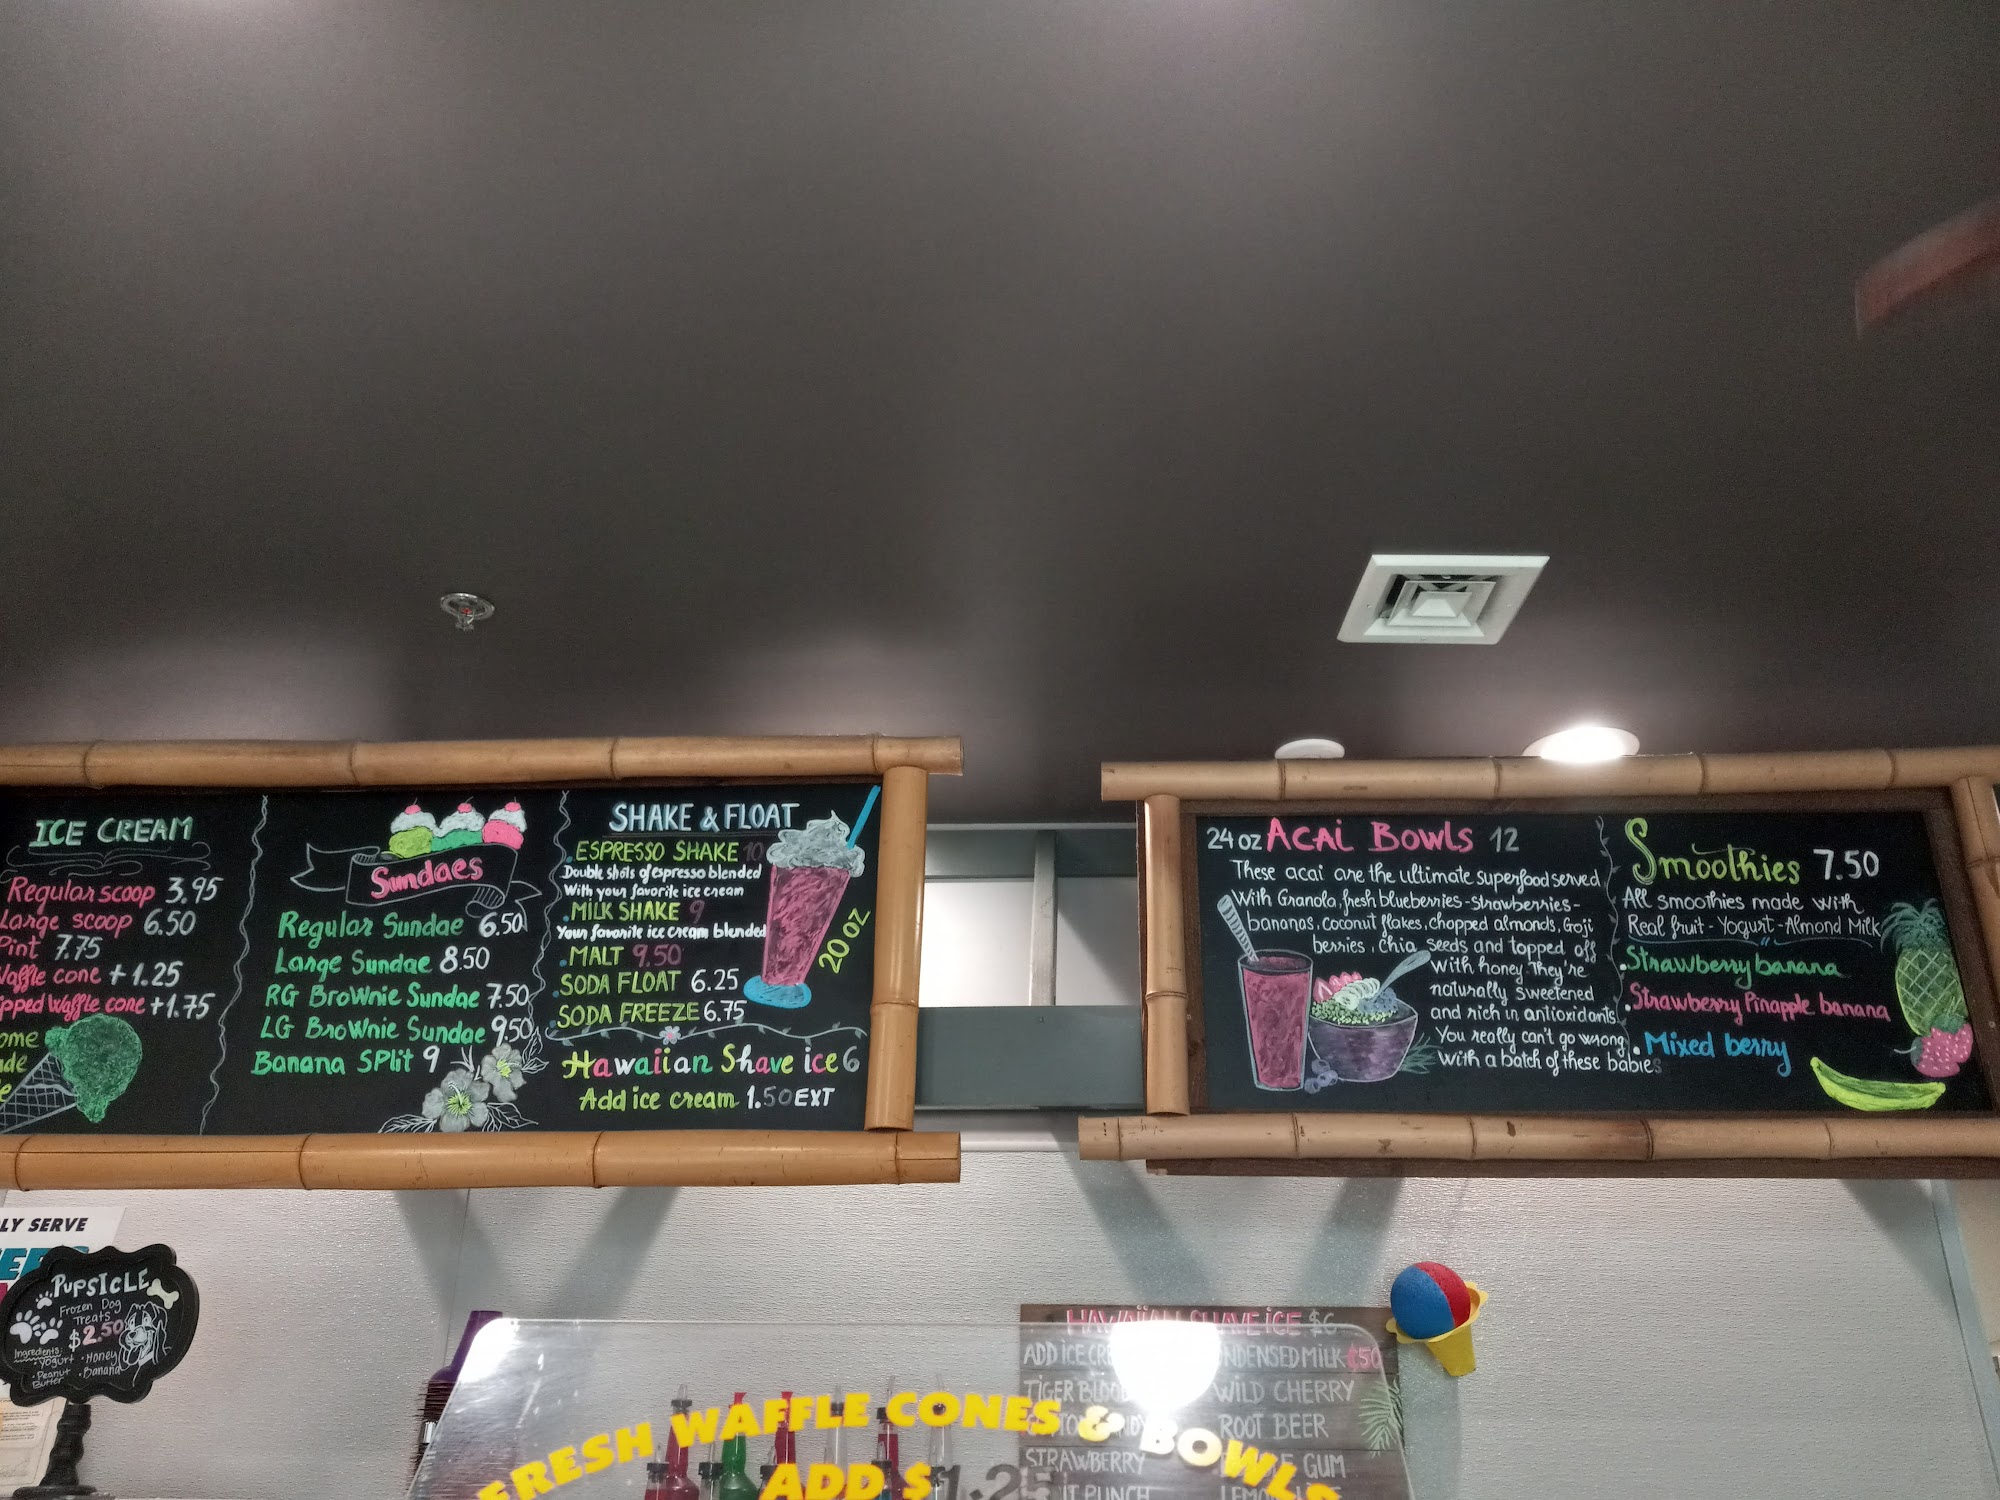 ICE CREAM
Regular scoop 3.95
Large scoop 6.50
Pint 7.75
Waffle cone +1.25
ipped Waffle cone +1.75
ome
ade
Sundaes
Regular Sundae 6.50
Large Sundae 8.50
RG BroWnie Sundae 7.50
LG BroWnie Sundae 9.50
Banana SPlit 9
SHAKE & FLOAT
.ESPRESSO SHAKE 10
Double shots of espresso blended
With your favorite ice cream
.MILK SHAKE 9
Your favorite ice cream blended
.MALT 9.50
.SODA FLOAT 6.25
.SODA FREEZE 6.75
20 OZ
Hawaiian Shave ice 6
Add ice cream 1.50 EXT
24 oz ACAi BOWLS 12
These acai are the ultimate superfood served
With Granola, fresh blueberries - strawberries -
bananas, coconut flakes, chopped almonds, Goji
berries, chia seeds and topped off
with honey. They're
naturally sweetened
and rich in antioxidants
You really can't go wrong
With a batch of these babies
Smoothies 7.50
All smoothies made with
Real fruit - Yogurt - Almond Milk
.Strawberry banana
.Strawberry Pinapple banana
.Mixed berry
LY SERVE
PUPSICLE
Frozen Dog
Treats
$2.50
Ingredients:
• Yogurt • Honey
• Peanut Butter • Banana
HAWAIIAN SHAVE ICE $6
ADD ICE CRE NDENSED MILK ¢50
TIGER BLOOD WILD CHERRY
ROOT BEER
STRAWBERRY GUM
IT PUNCH
FRESH WAFFLE CONES & BOWLS
ADD $1.25